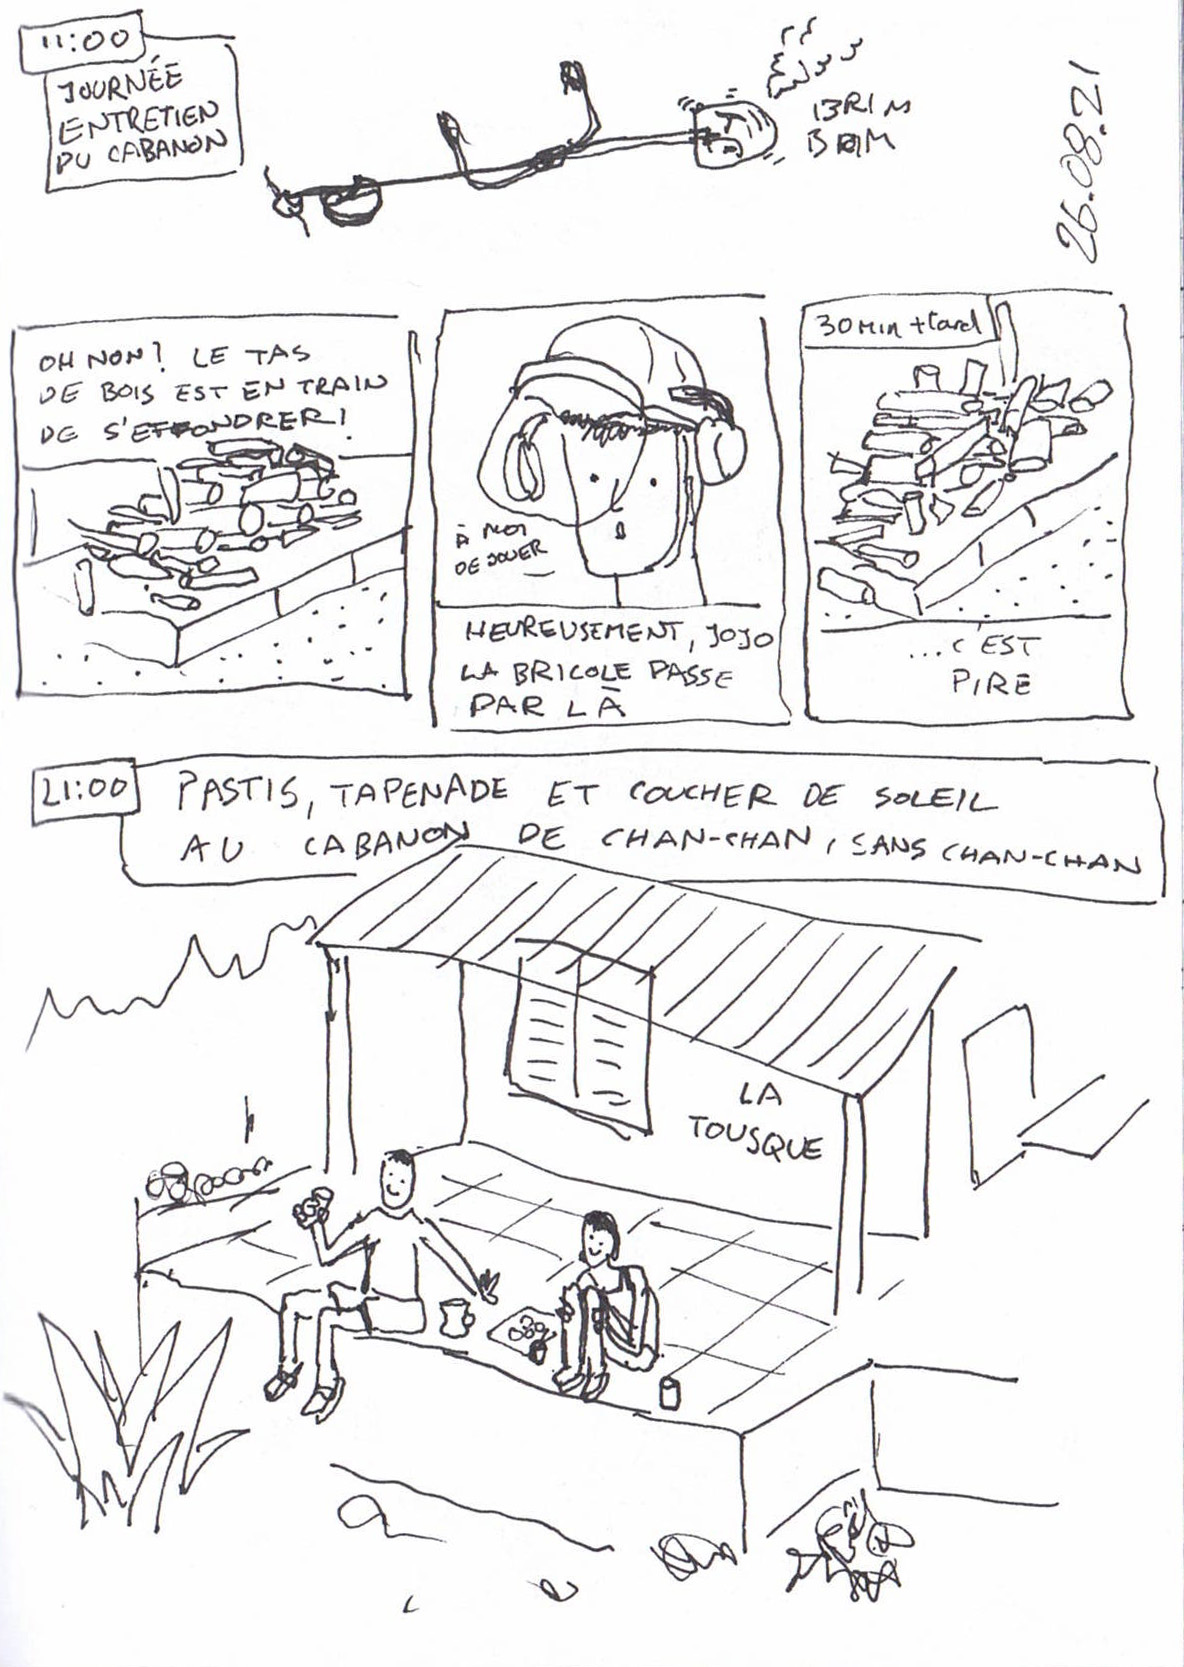 11:00
JOURNÉE
ENTRETIEN
DU CABANON
BRIM
BRIM
26.08.21
OH NON! LE TAS
DE BOIS EST EN TRAIN
DE S'EFFONDRER!
À MOI
DE JOUER
HEUREUSEMENT, JOJO
LA BRICOLE PASSE
PAR LÀ
30 MIN + tard
...C'EST
PIRE
21:00
PASTIS, TAPENADE ET COUCHER DE SOLEIL
AU CABANON DE CHAN-CHAN, SANS CHAN-CHAN
LA
TOUSQUE